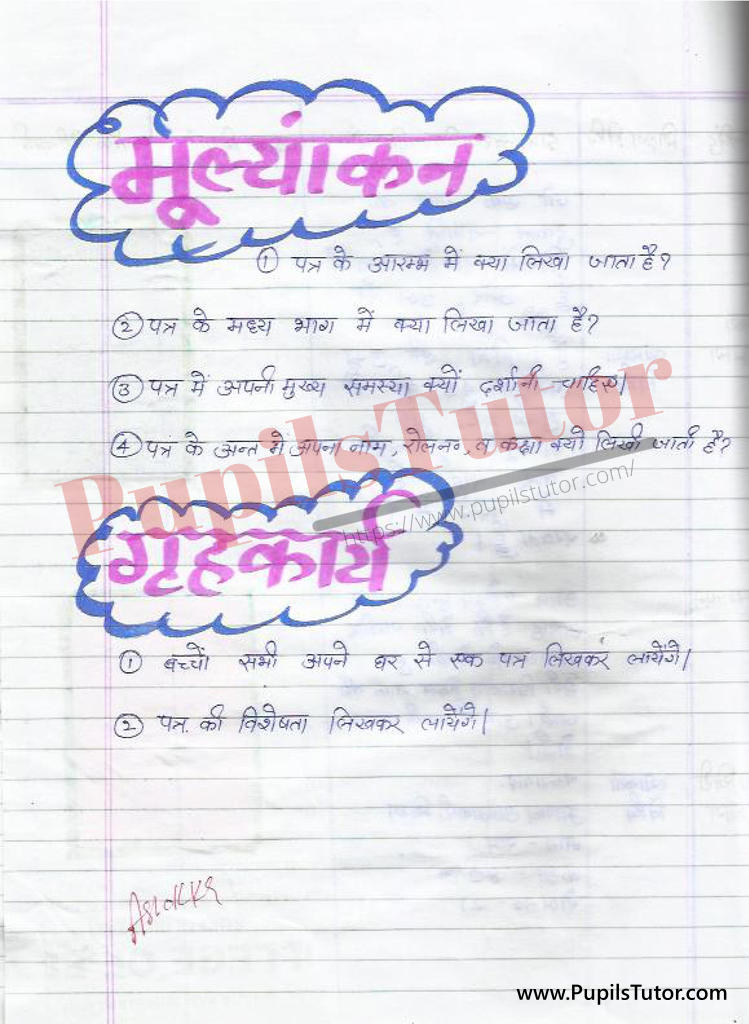 मूल्यांकन
① पत्र के आरम्भ में क्या लिखा जाता है?
② पत्र के मध्य भाग में क्या लिखा जाता है?
③ पत्र में अपनी मुख्य समस्या क्यों दर्शानी चाहिए।
④ पत्र के अन्त में अपना नाम, रोलनन, व कक्षा क्यों लिखी जाती है?
PupilsTutor
https://www.pupilstutor.com/
गृहकार्य
① बच्चों सभी अपने घर से एक पत्र लिखकर लायेंगे।
② पत्र. की विशेषता लिखकर लायेंगे।
www.PupilsTutor.com